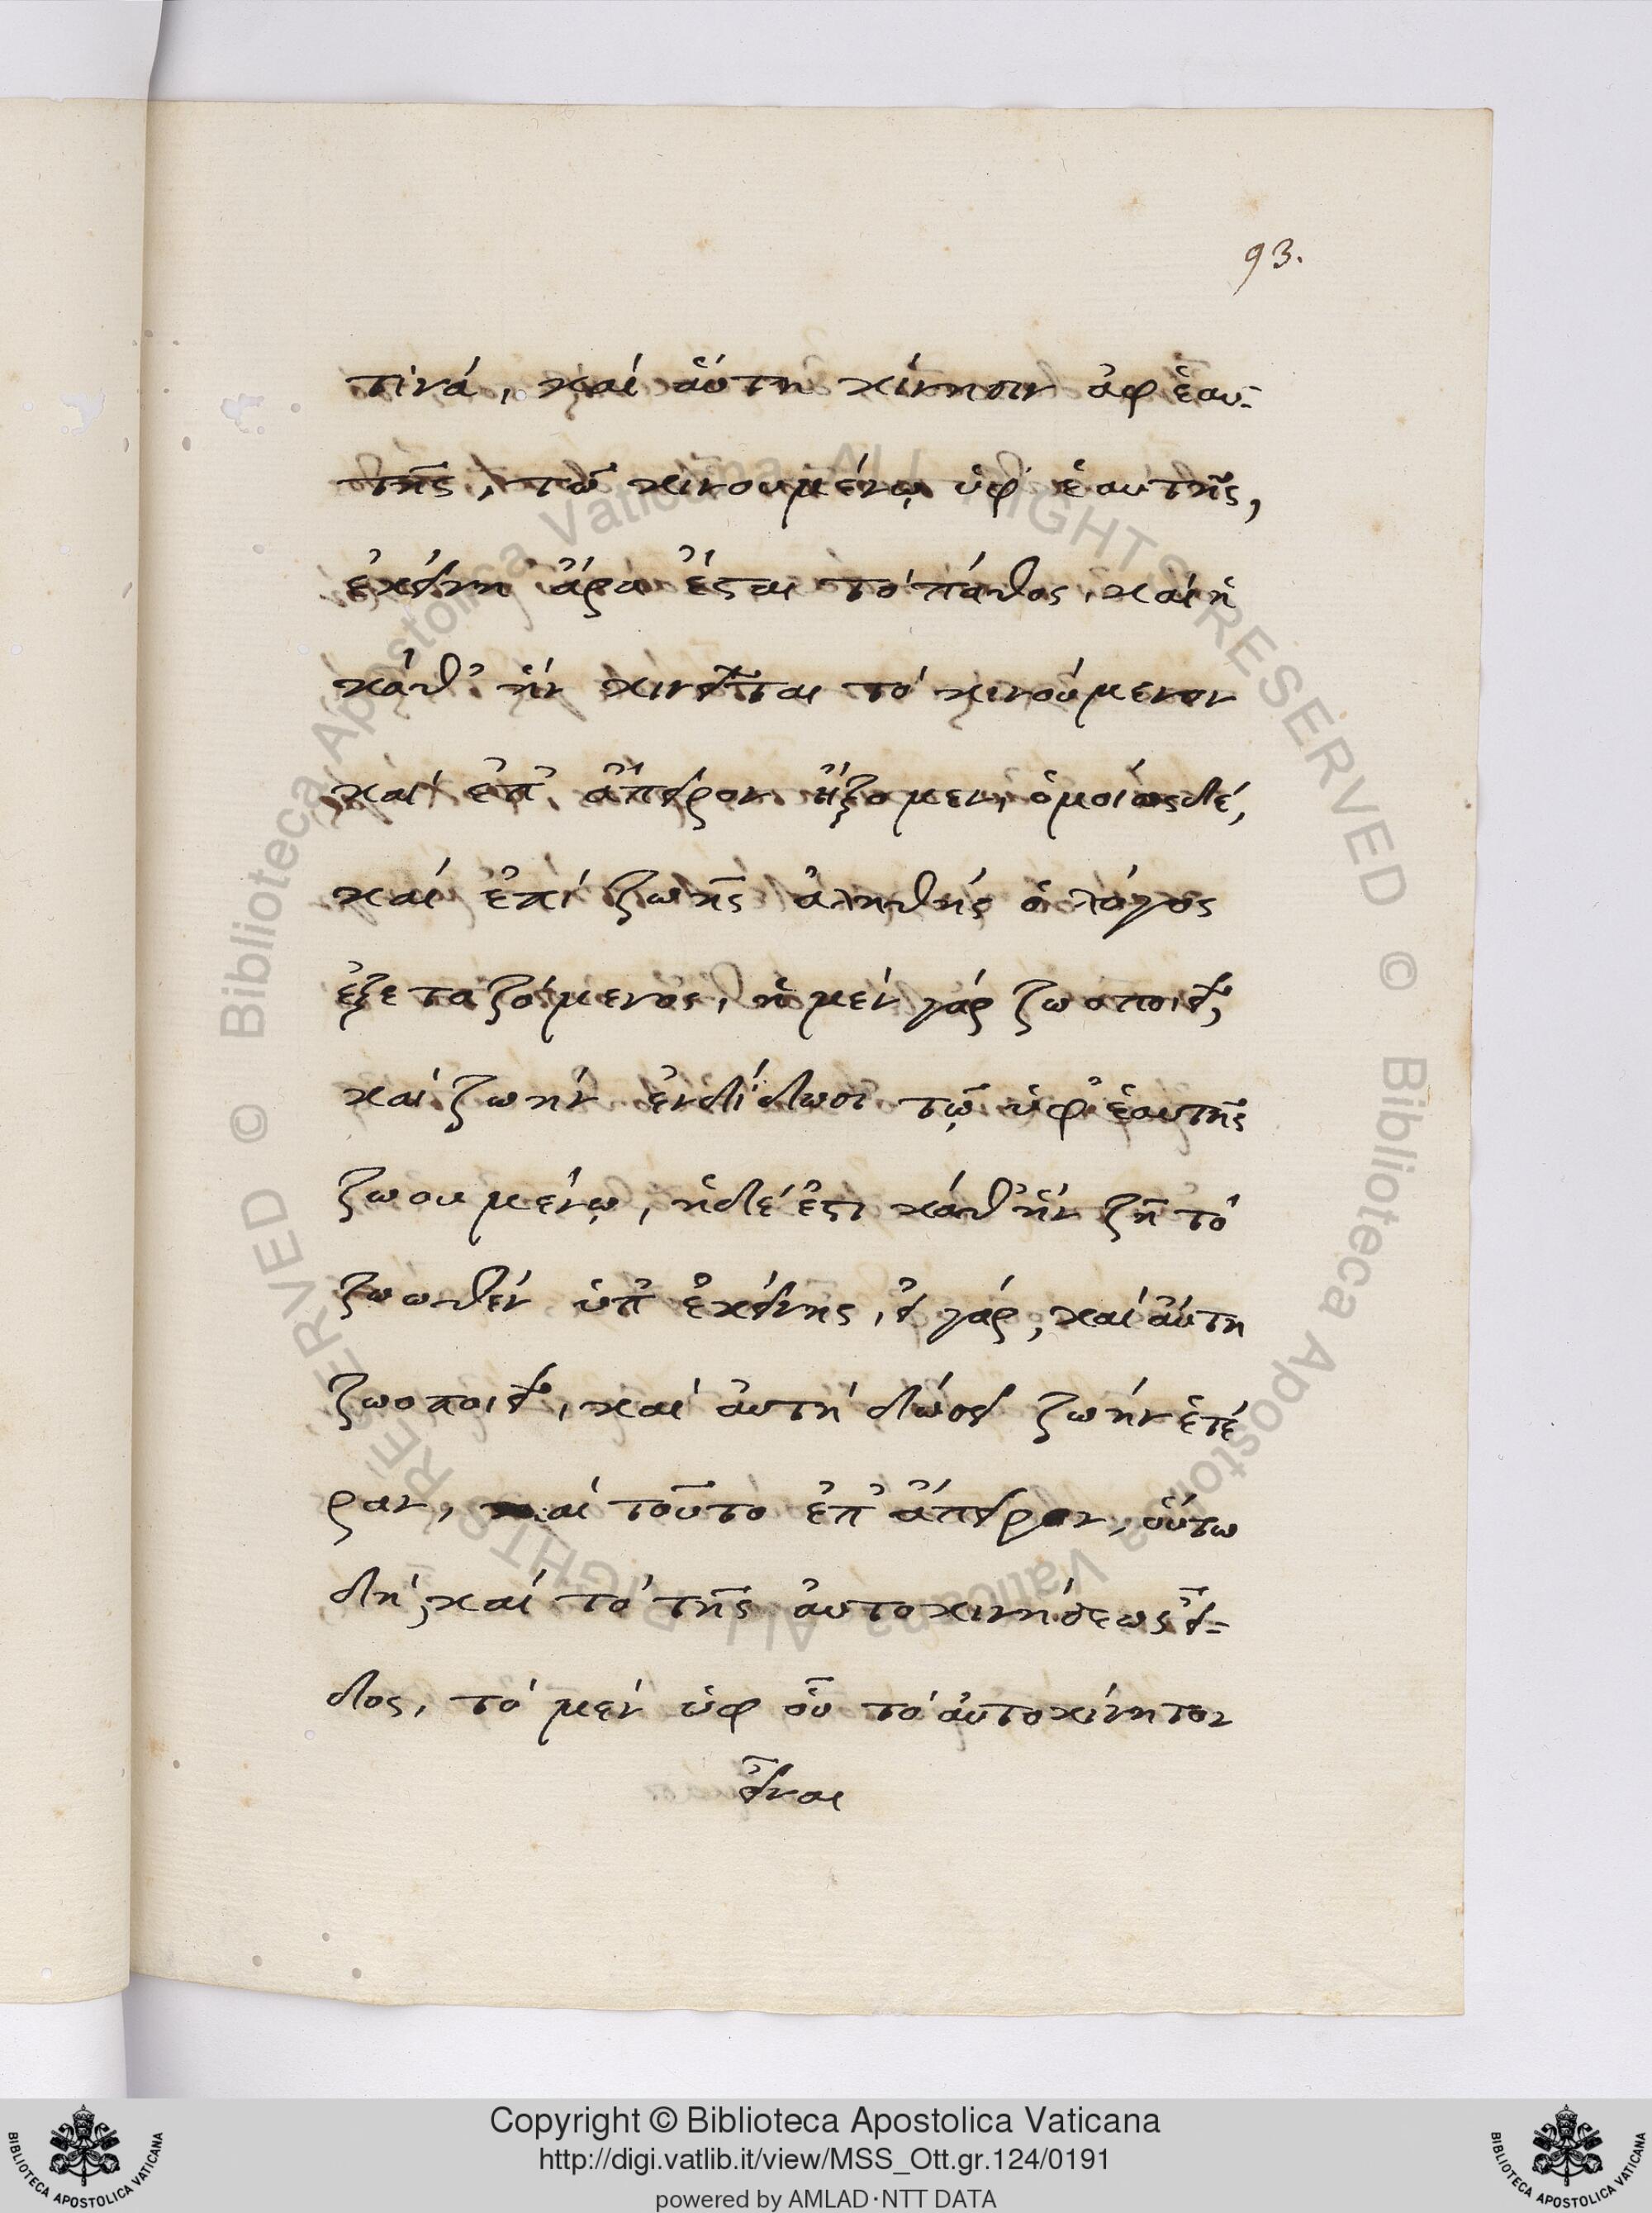 93.
τινά, καί αὕτη κίνησιν ἀφ ἑαυ-
τῆς, τῷ κινουμένῳ ὑφ' ἑαυτῆς,
ἐκείνη ἄρα ἔσται τό πάθος, καί ἡ
κάθ' ἥν κινεῖται τό κινούμενον
καί ἐπ' ἄπειρον ἥξομεν, ὁμοίως δέ,
καί ἐπί ζωῆς ἀληθής ὁ λόγος
ἐξεταζόμενος, ἡ μέν γάρ ζωοποιεῖ,
καί ζωήν ἐνδίδωσι τῷ ὑφ' ἑαυτῆς
ζωουμένῳ, ἡ δέ ἔστι κάθ' ἥν ζῆ τό
ζωωθέν ὑπ' ἐκείνης, εἰ γάρ, καί αὕτη
ζωοποιεῖ, καί ἀυτή δώσει ζωήν ἑτέ
ραν, καί τοῦτο ἐπ' ἄπειρον, οὕτω
δή καί τό τῆς ἀυτοκινήσεως εἶ-
δος, τό μέν ὑφ οὗ τό ἀυτοκίνητον
εἶναι
Copyright © Biblioteca Apostolica Vaticana
http://digi.vatlib.it/view/MSS_Ott.gr.124/0191
powered by AMLAD·NTT DATA
BIBLIOTECA APOSTOLICA VATICANA
BIBLIOTECA APOSTOLICA VATICANA
© Biblioteca Apostolica Vaticana ALL RIGHTS RESERVED
© Biblioteca Apostolica Vaticana ALL RIGHTS RESERVED